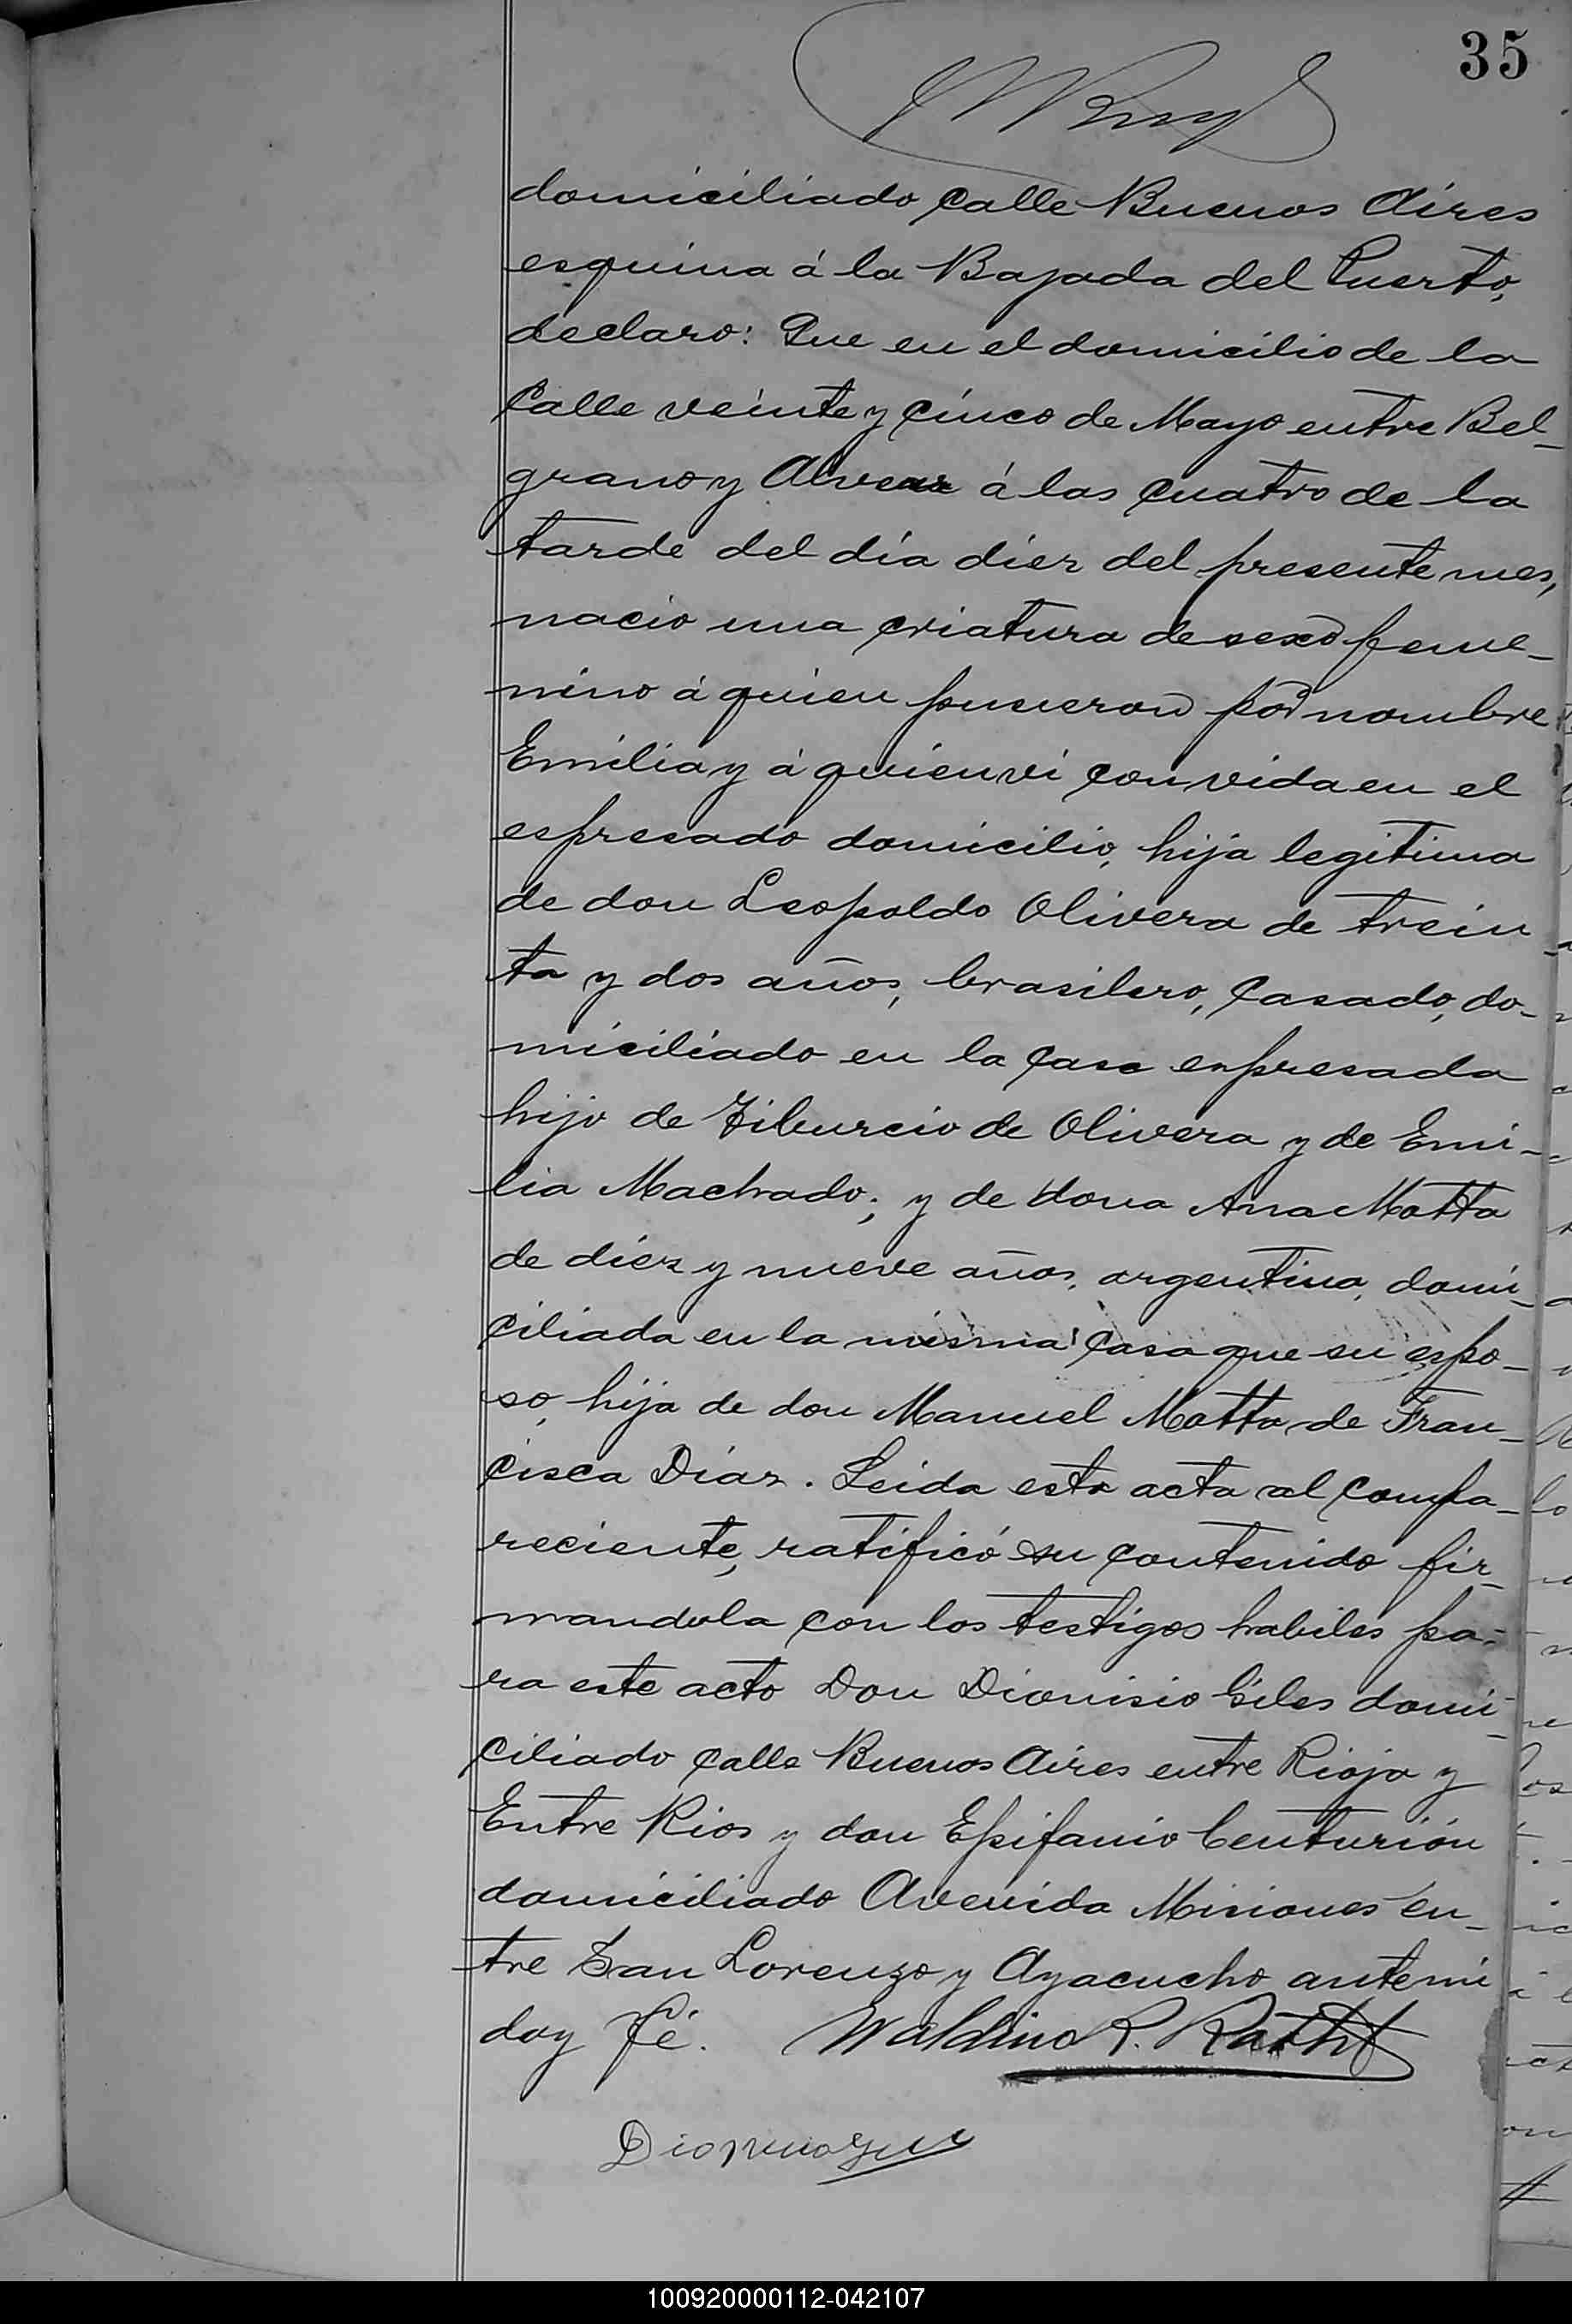 35
domiciliado calle Buenos Aires
esquina á la Bajada del Puerto,
declaro: Que en el domicilio de la
Calle veinte y cinco de Mayo entre Bel-
grano y Alvear á las cuatro de la
tarde del día diez del presente mes,
nacio una criatura de sexo feme-
nino á quien pusieron por nombre
Emilia y á quien vi con vida en el
espresado domicilio, hija legitima
de don Leopoldo Olivera de trein
ta y dos años, brasilero, casado, do-
miciliado en la casa espresada
hijo de Tiburcio de Olivera y de Emi-
lia Machado; y de doña Ana Motta
de diez y nueve años, argentina, domi-
ciliada en la misma casa que su espo-
so, hija de don Manuel Motta de Fran-
cisca Diaz. Leida esta acta al compa-
reciente, ratificó su contenido fir-
mandola con los testigos habiles pa-
ra este acto Don Dionisio Giles domi-
ciliado calle Buenos Aires entre Rioja y
Entre Rios y don Epifanio Centurión
domiciliado Avenida Misiones en-
tre San Lorenzo y Ayacucho ante mi
doy fé. Waldino R.
100920000112-042107